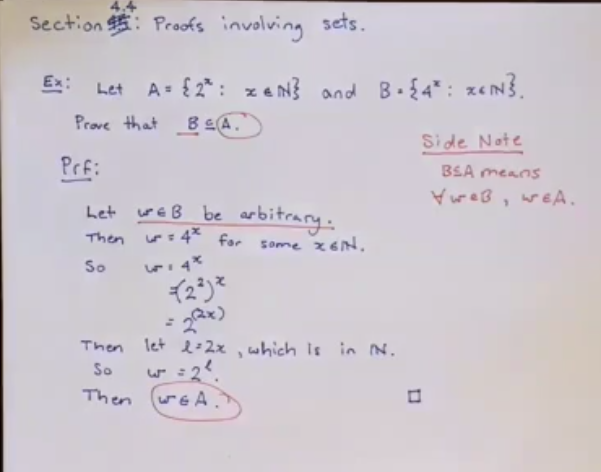 Section 4.4: Proofs involving sets.
Ex: Let A = {2^x : x ∈ ℕ} and B = {4^x : x ∈ ℕ}.
Prove that B ⊆ A.
Side Note
B⊆A means
∀w∈B, w∈A.
Prf:
Let w∈B be arbitrary.
Then w = 4^x for some x∈ℕ.
So w = 4^x
=(2^2)^x
= 2^(2x)
Then let ℓ=2x, which is in ℕ.
So w = 2^ℓ.
Then w∈A. □